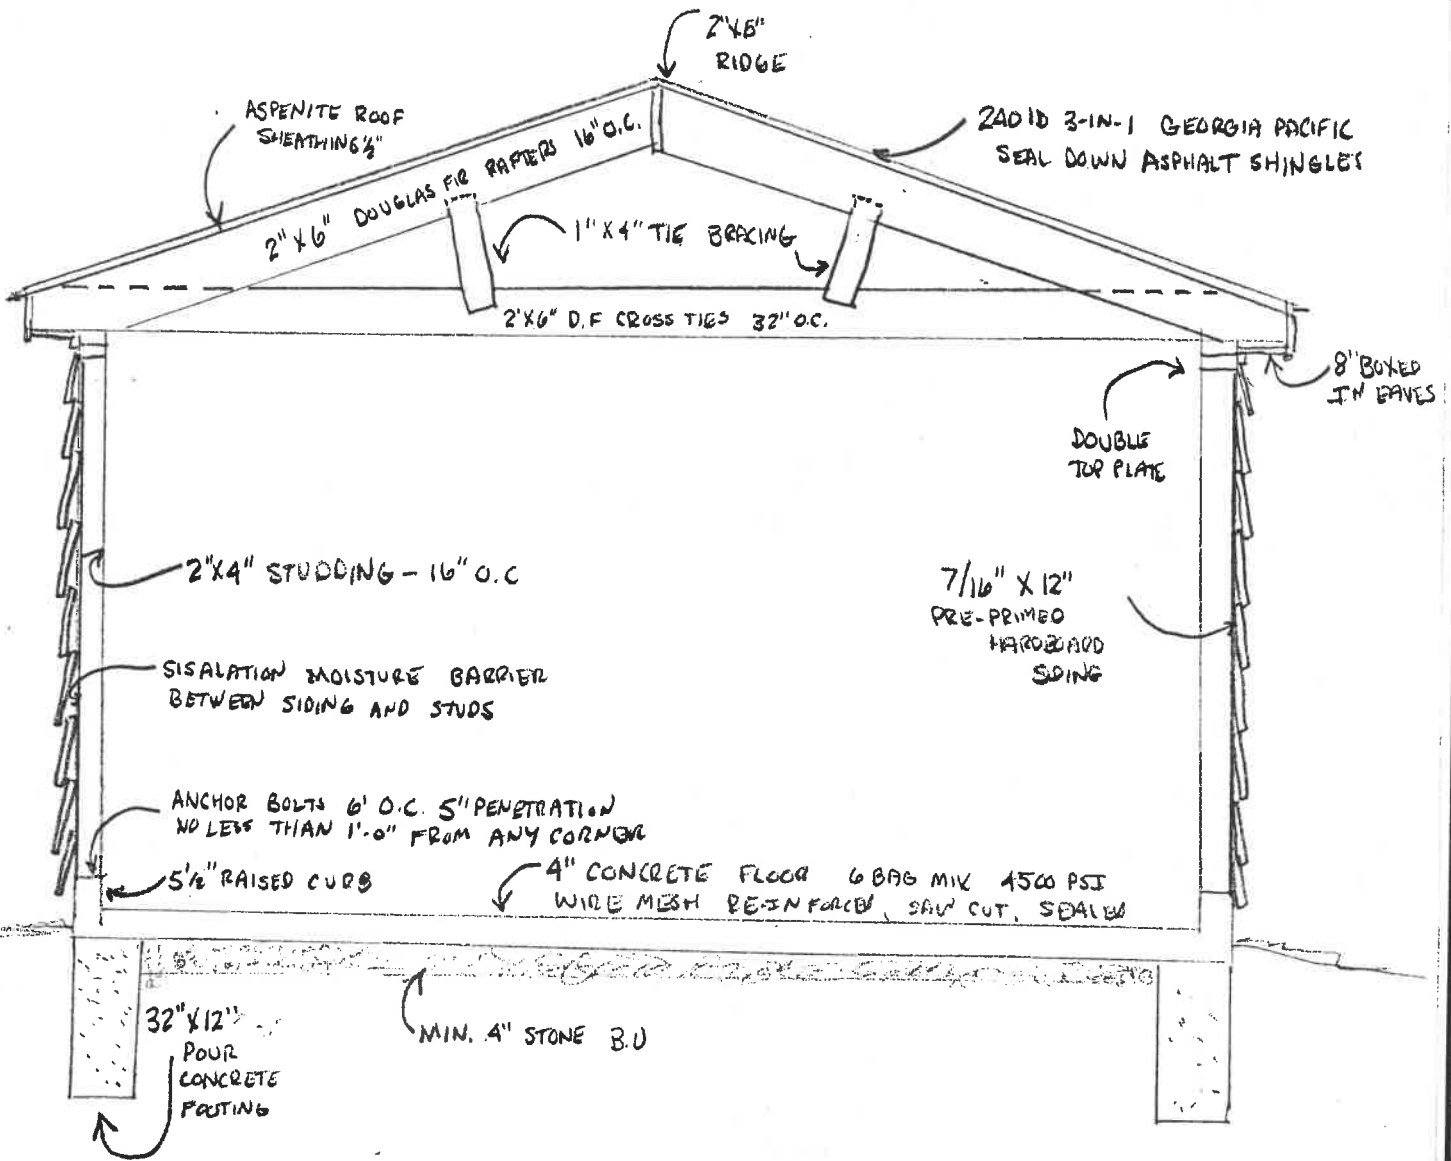 2"X8"
RIDGE
ASPENITE ROOF
SHEATHING ½"
240 lb 3-IN-1 GEORGIA PACIFIC
SEAL DOWN ASPHALT SHINGLES
2"X6" DOUGLAS FIR RAFTERS 16" O.C.
1"X4" TIE BRACING
2"X6" D.F CROSS TIES 32" O.C.
8" BOXED
IN EAVES
DOUBLE
TOP PLATE
2"X4" STUDDING - 16" O.C
7/16" X 12"
PRE-PRIMED
HARDBOARD
SIDING
SISALATION MOISTURE BARRIER
BETWEEN SIDING AND STUDS
ANCHOR BOLTS 6' O.C. 5" PENETRATION
NO LESS THAN 1'-0" FROM ANY CORNER
5½" RAISED CURB
4" CONCRETE FLOOR 6 BAG MIX 4500 PSI
WIRE MESH RE-INFORCED, SAW CUT, SEALED
32"X12"
POUR
CONCRETE
FOOTING
MIN. 4" STONE B.U